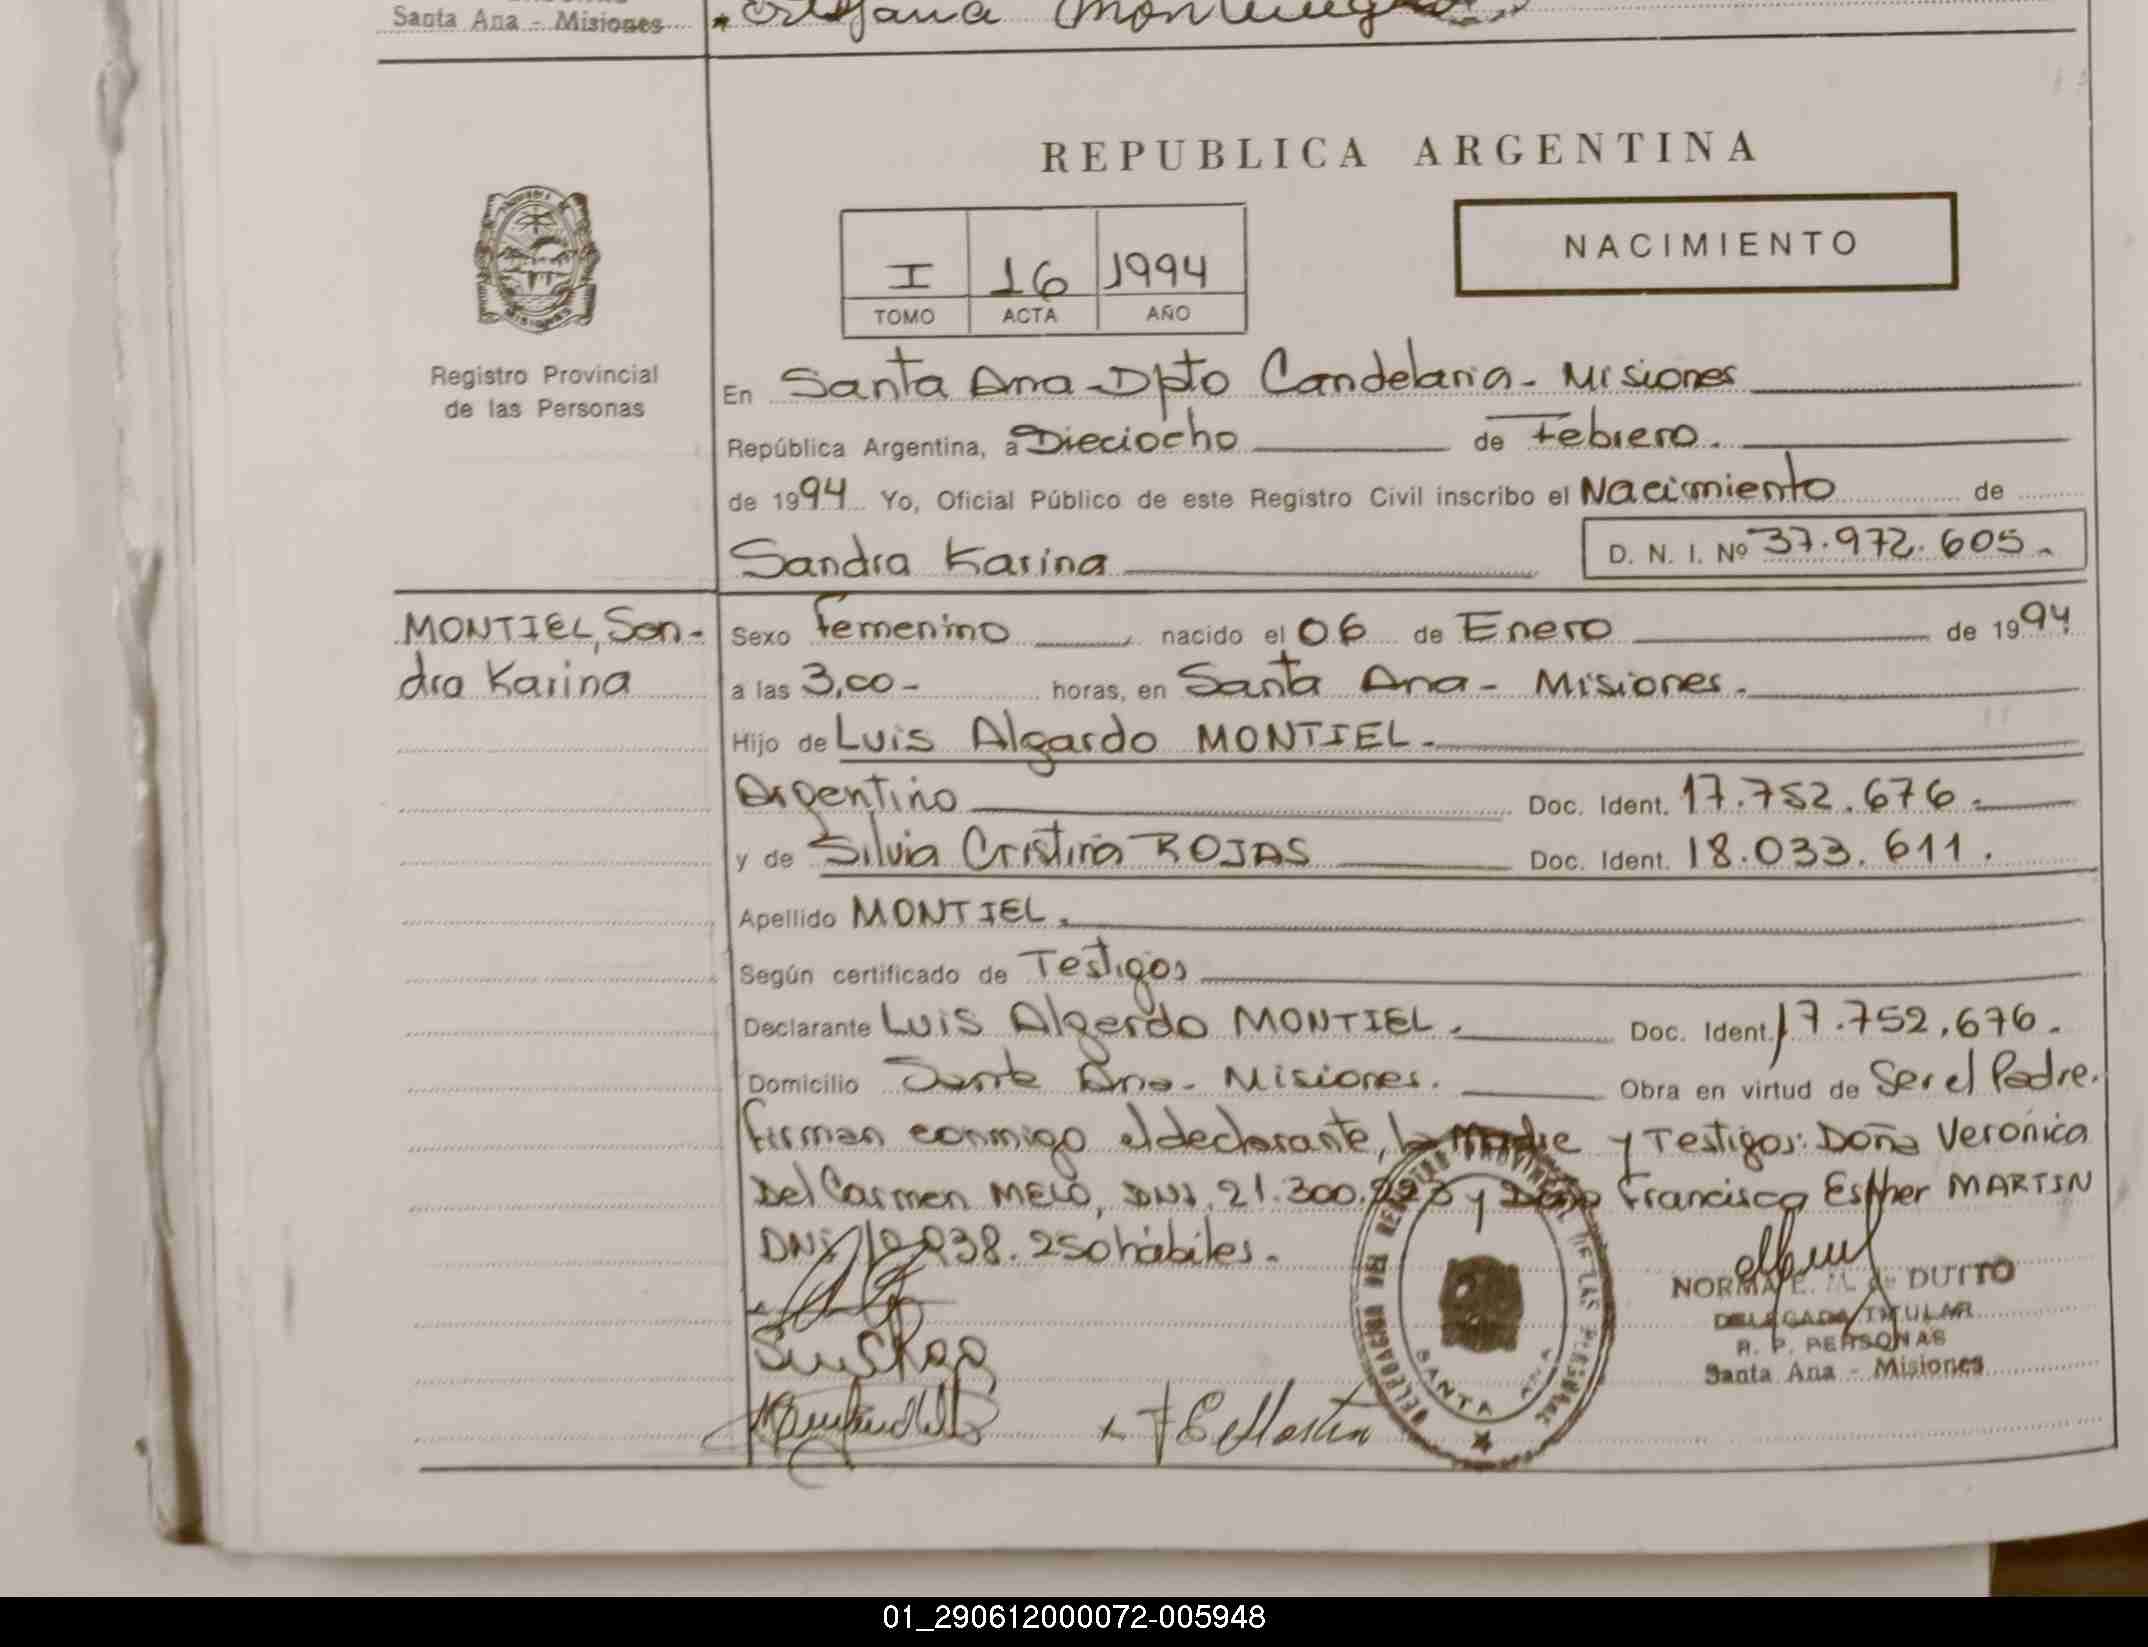 Santa Ana - Misiones
REPUBLICA ARGENTINA
NACIMIENTO
I 16 1994
TOMO ACTA AÑO
MISIONES
Registro Provincial
de las Personas
En Santa Ana - Dpto Candelaria - Misiones
República Argentina, a Dieciocho de Febrero.
de 1994 Yo, Oficial Público de este Registro Civil inscribo el Nacimiento de
Sandra Karina D. N. I. Nº 37.972.605.-
MONTIEL, San-
dra Karina
Sexo femenino nacido el 06 de Enero de 1994
a las 3,00- horas, en Santa Ana - Misiones.
Hijo de Luis Algardo MONTIEL.
Argentino Doc. Ident. 17.752.676.
y de Silvia Cristina ROJAS Doc. Ident. 18.033.611.
Apellido MONTIEL.
Según certificado de Testigos
Declarante Luis Algerdo MONTIEL. Doc. Ident. 17.752.676.
Domicilio Santa Ana - Misiones. Obra en virtud de Ser el Padre.
firman conmigo el declarante, la Madre y Testigos: Doña Verónica
Del Carmen MELO, DNI. 21.300. y Doña Francisca Esther MARTIN
DNI 038.250 hábiles.
DELEGACION DEL REGISTRO PROVINCIAL DE LAS PERSONAS
SANTA ANA
NORMA E. DUTTO
DELEGADA TITULAR
R. P. PERSONAS
Santa Ana - Misiones
F E Martin
01_290612000072-005948